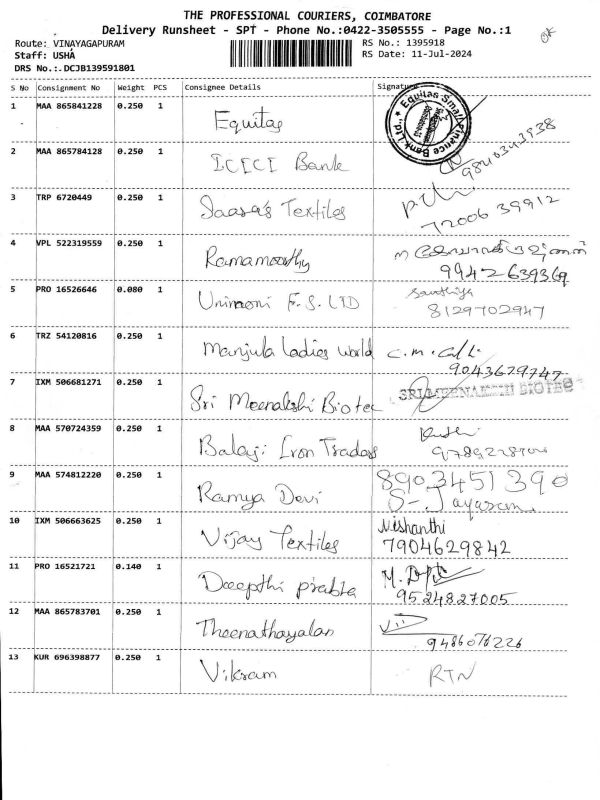 THE PROFESSIONAL COURIERS, COIMBATORE
Delivery Runsheet - SPT - Phone No.:0422-3505555 - Page No.:1
OK
Route: VINAYAGAPURAM
RS No.: 1395918
Staff: USHA
RS Date: 11-Jul-2024
DRS No.:.DCJB139591801
S No Consignment No Weight PCS Consignee Details Signature
1 MAA 865841228 0.250 1 Equitas
Equitas Small Finance Bank Ltd.
2 MAA 865784128 0.250 1 ICICI Bank
3 TRP 6720449 0.250 1 Saara's Textiles
72006 39912
4 VPL 522319559 0.250 1 Ramamoorthy
9942639369
5 PRO 16526646 0.080 1 Unimoni F.S. LTD Santhiya
8129702947
6 TRZ 54120816 0.250 1 Manjula Ladies World
9043629747
7 IXM 506681271 0.250 1 Sri Meenakshi Biotec SRI MEENAKSHI BIOTEC
8 MAA 570724359 0.250 1 Balaji Iron Traders
9 MAA 574812220 0.250 1 Ramya Devi 8903451390
S-Jayaram
10 IXM 506663625 0.250 1 Vijay Textiles Nishanthi
7904629842
11 PRO 16521721 0.140 1 Deepthi prabha
9524827005
12 MAA 865783701 0.250 1 Theenathayalan
9486076226
13 KUR 696398877 0.250 1 Vikram RTN